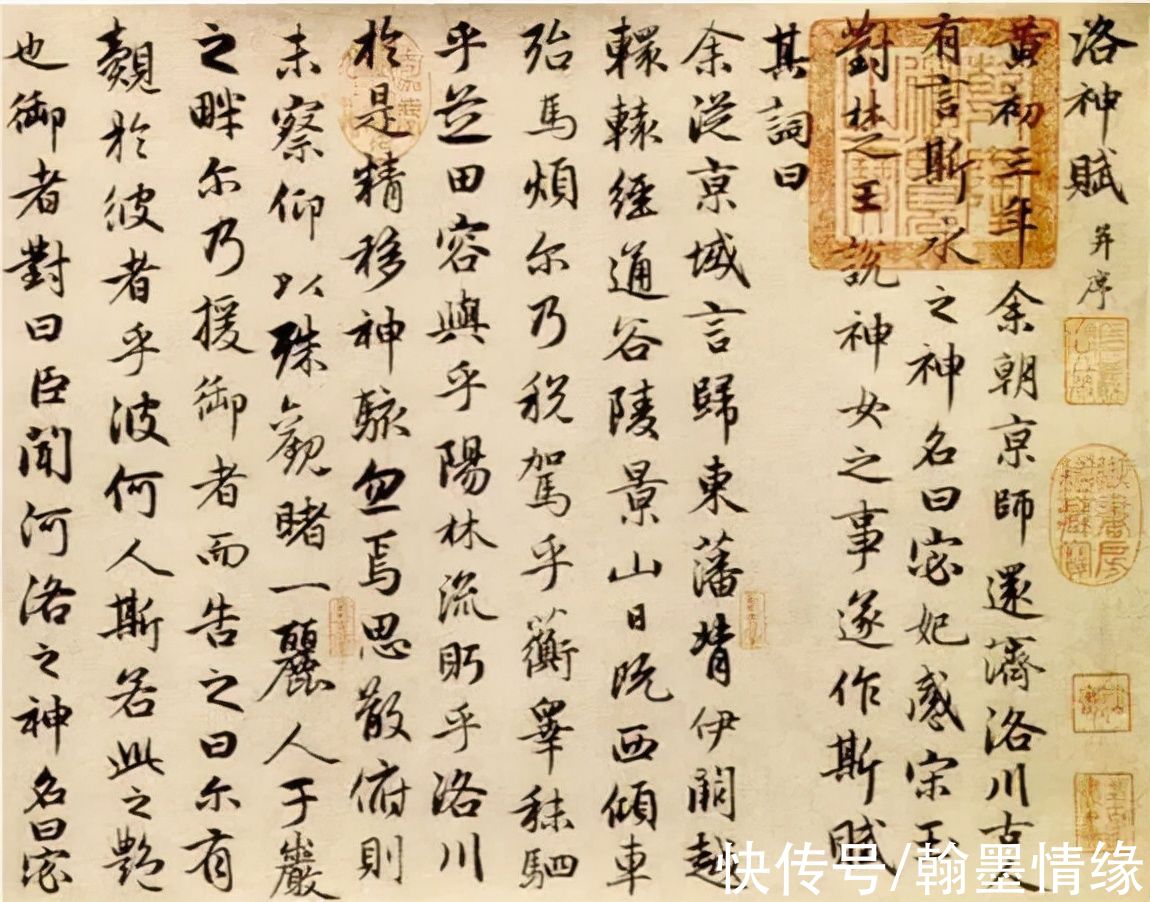 洛神賦 并序
黃初三年余朝京師還濟洛川古人
有言斯水之神名曰宓妃感宋玉
對楚王說神女之事遂作斯賦
其詞曰
余從京域言歸東藩背伊闕越
轘轅經通谷陵景山日既西傾車
殆馬煩尔乃稅駕乎蘅皋秣駟
乎芝田容與乎陽林流眄乎洛川
於是精移神駭忽焉思散俯則
未察仰以殊觀睹一麗人于巖
之畔尔乃援御者而告之曰尔有
覿於彼者乎彼何人斯若此之艷
也御者對曰臣聞河洛之神名曰宓
御書房
快传号/翰墨情缘